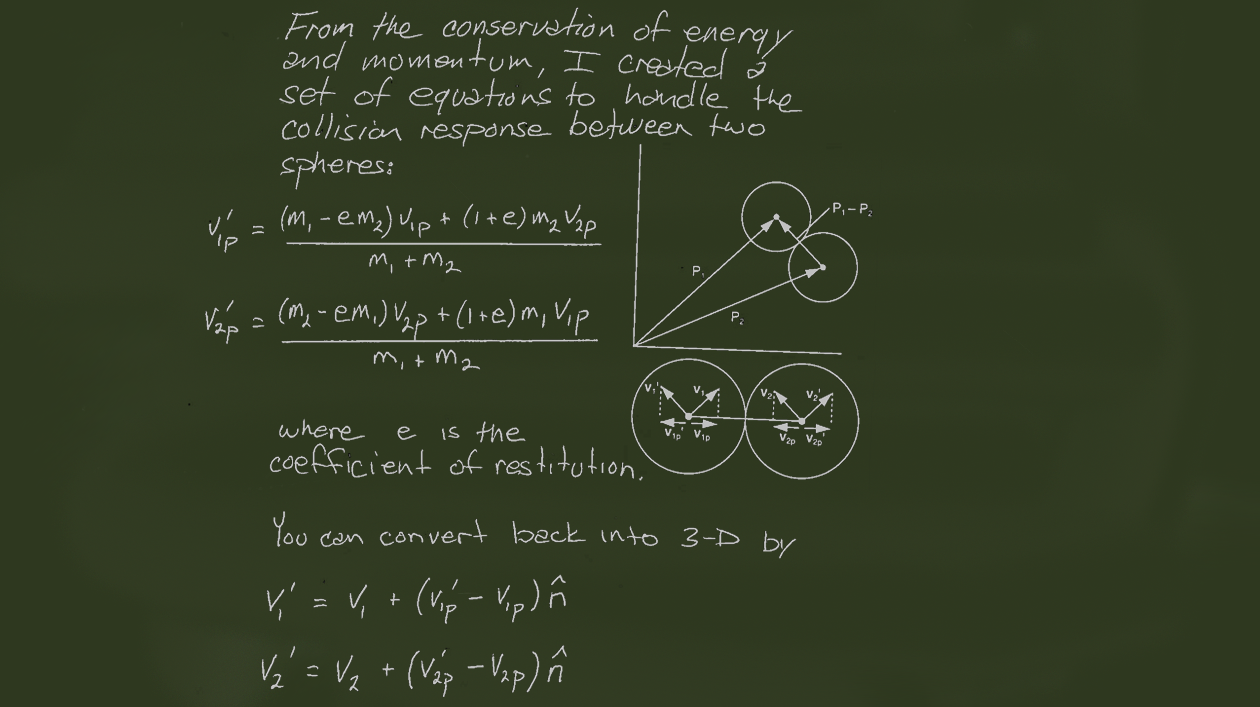 From the conservation of energy
and momentum, I created a
set of equations to handle the
collision response between two
spheres:
V₁ₚ' = (m₁ - em₂)V₁ₚ + (1+e)m₂V₂ₚ
m₁ + m₂
V₂ₚ' = (m₂ - em₁)V₂ₚ + (1+e)m₁V₁ₚ
m₁ + m₂
P₁ - P₂
P₁
P₂
V₁' V₁ V₂ V₂'
V₁ₚ' V₁ₚ V₂ₚ V₂ₚ'
where e is the
coefficient of restitution.
You can convert back into 3-D by
V₁' = V₁ + (V₁ₚ' - V₁ₚ) n̂
V₂' = V₂ + (V₂ₚ' - V₂ₚ) n̂